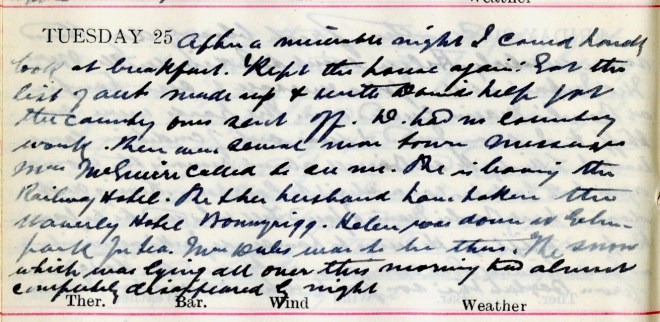 Weather
TUESDAY 25 After a miserable night I could hardly
look at breakfast. Kept the house again. Got the
list of made up & with help got
the country ones sent off. D. had no country
work. There were several more town messages
Mrs McGuire called to see me. She is leaving the
Railway Hotel. She & her husband have taken the
Waverly Hotel Bonnyrigg. Helen was down at
park for tea. Mrs was to be there. The snow
which was lying all over this morning had almost
completely disappeared by night
Ther. Bar. Wind Weather